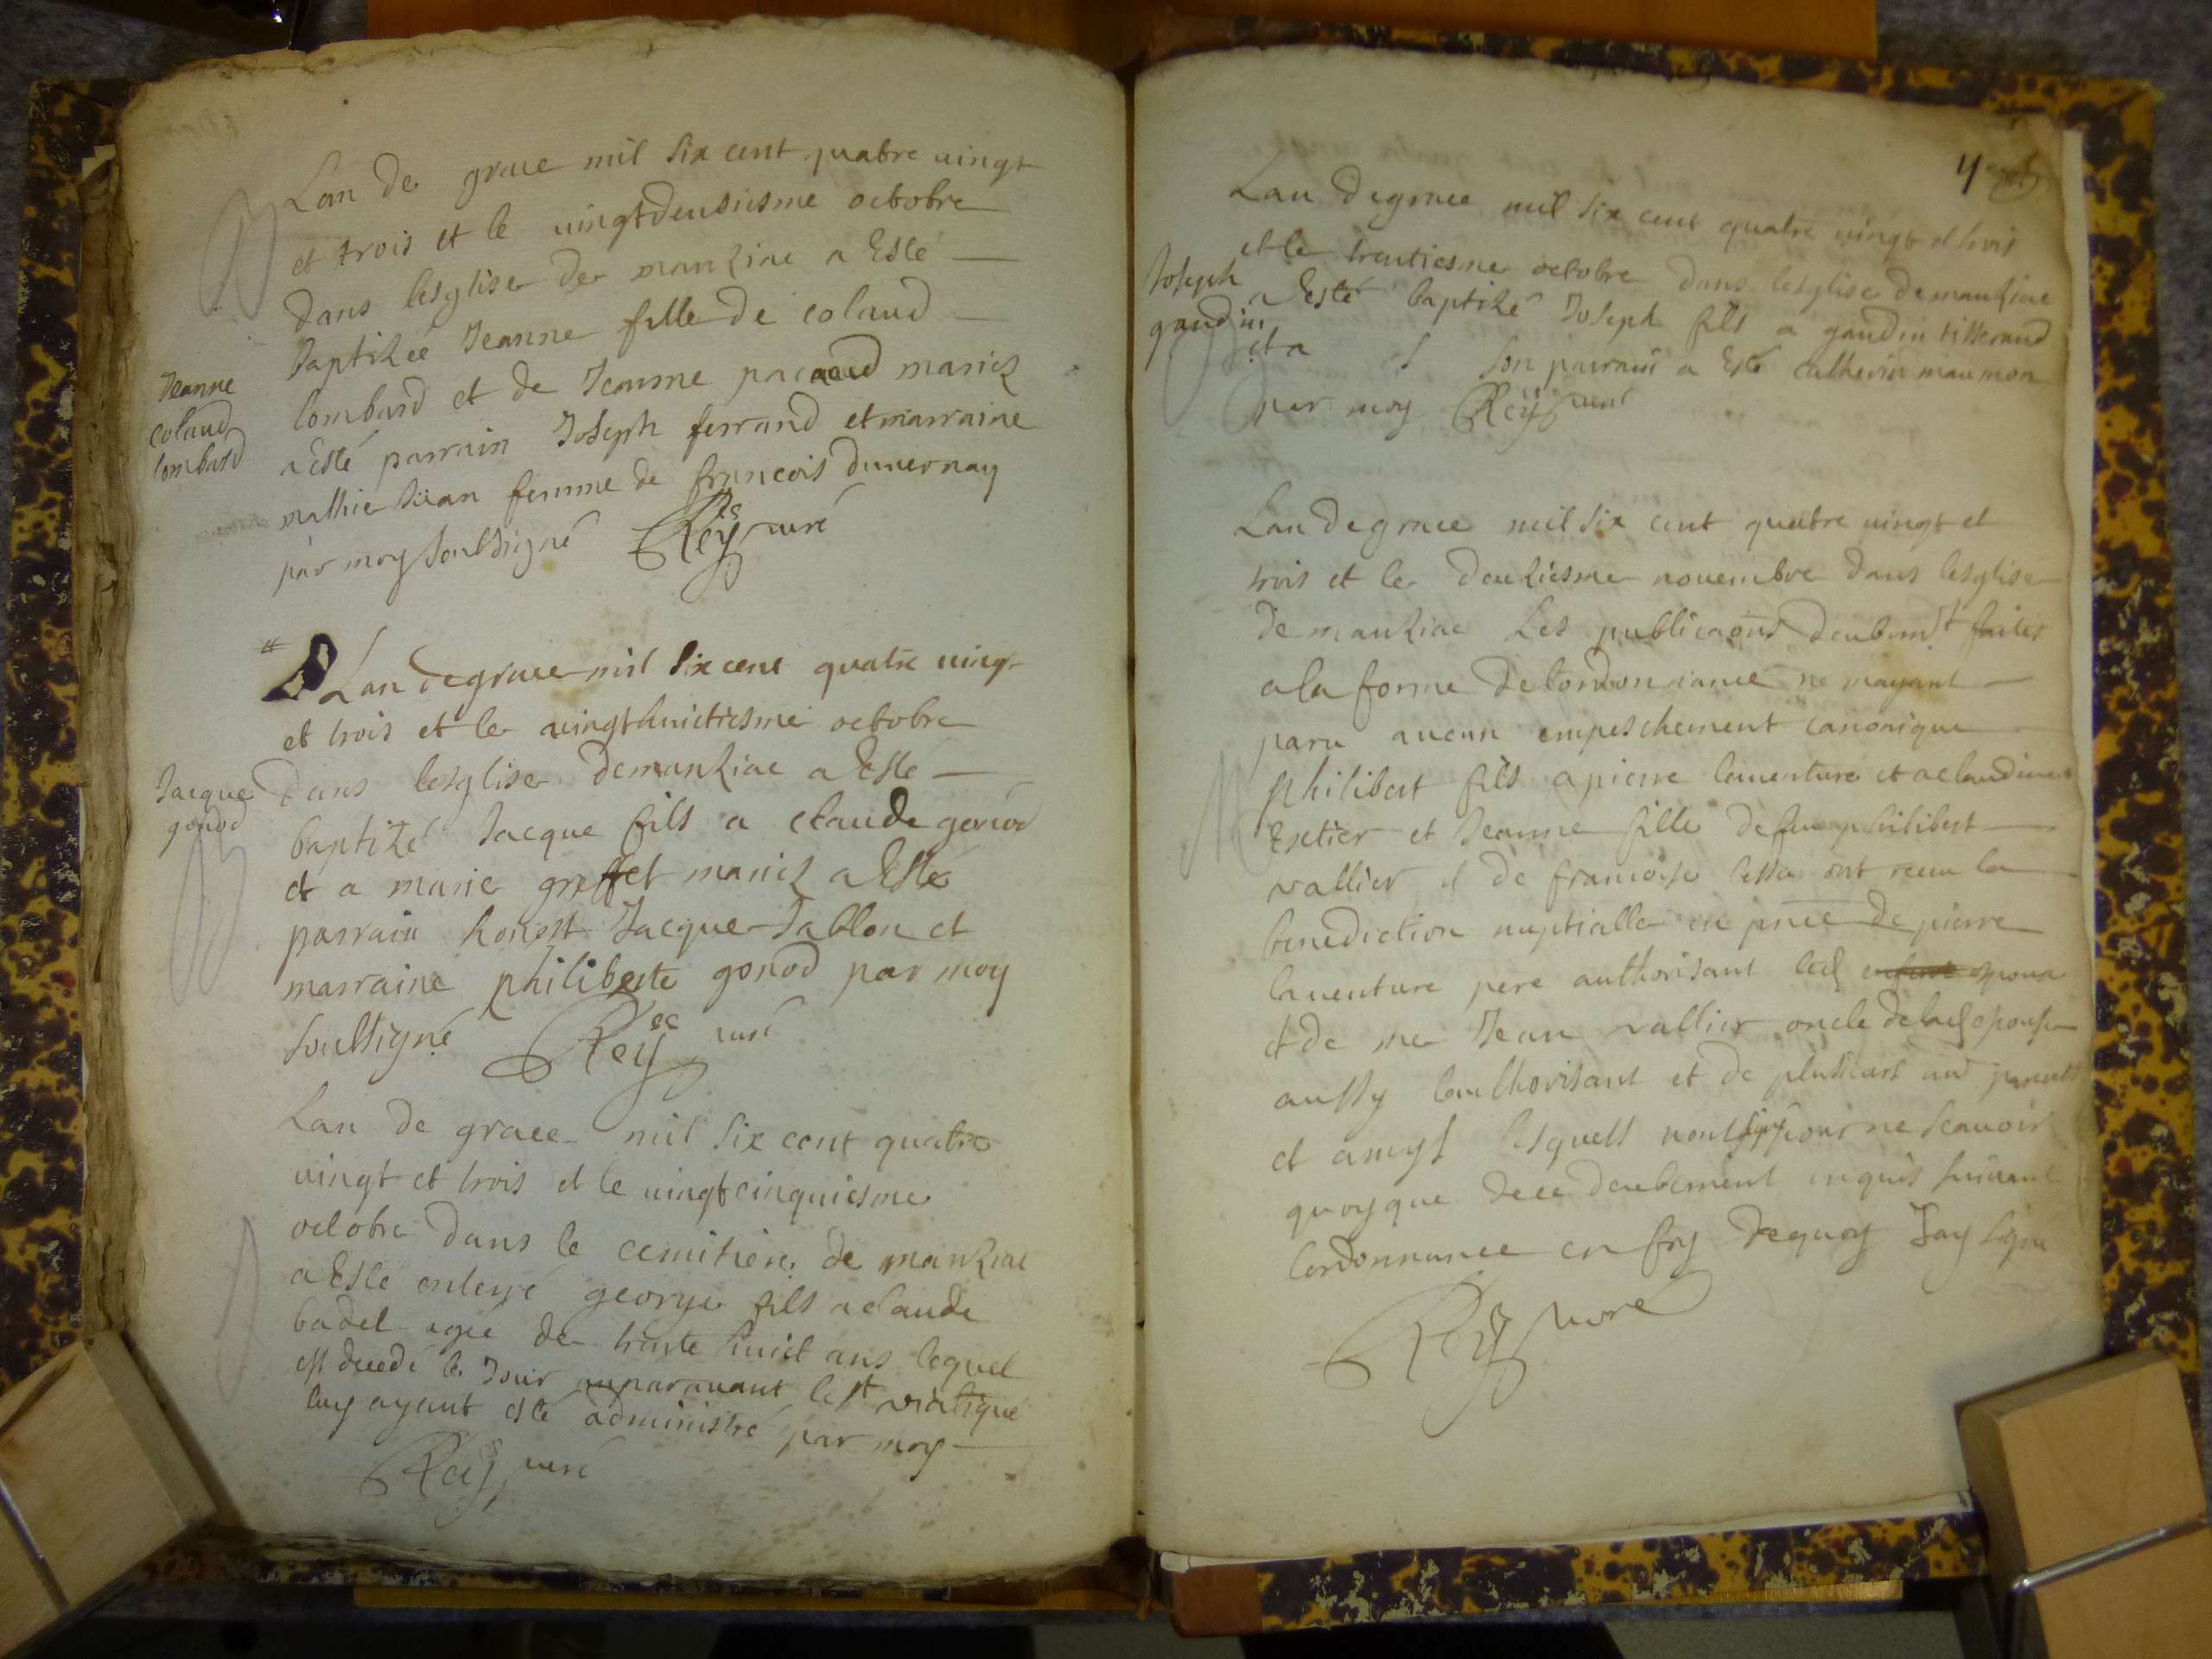 Lan de grace mil six cent quatre vingt
et trois et le vingtdeusiesme octobre
dans lesglise de manziac a Esté
Baptizée Jeanne fille de colaud
Jeanne
colaud
lombard
lombard et de Jeanne pacaud mariez
a esté parrain Joseph ferrand et marraine
mathie Siian femme de francois duvernay
par moy soubsigné Rey curé
B
Lan de grace mil six cent quatre vingt
et trois et le vingthuictiesme octobre
dans lesglise de manziac a Esté
Jacque
gonod
baptizé Jacque fils a claude gonod
et a marie greffet mariez a Esté
parrain honest Jacque Sablon et
marraine philiberte gonod par moy
soubsigné Rey curé
B
Lan de grace mil six cent quatre
vingt et trois et le vingtcinquiesme
octobre dans le cemitiere de manziac
a Esté enterré george fils a claude
badel agé de trante huict ans lequel
est decedé le Jour auparavant le st viatique
luy ayant esté administré par moy
Rey curé
4
Lan de grace mil six cent quatre vingt et trois
et le trentiesme octobre dans lesglise de manziac
Joseph
gaudin
a Esté baptizé Joseph fils a gaudin tisserand
et a son parrain a Esté catherin maumon
par moy Rey curé
B
Lan de grace mil six cent quatre vingt et
trois et le deuziesme novembre dans lesglise
de manziac Les publicaons deubmt faites
a la forme de lordonnance ne mayant
paru aucun empeschement canonique
philibert fils a pierre laventure et a claudine
Exetier et Jeanne fille de feu philibert
vallier et de francoise lessa ont receu la
benediction nuptialle en pnce de pierre
laventure pere authorisant led enfant epoux
et de me Jean vallier oncle de lad epouse
aussy lauthorisant et de plusieurs aud parents
et amys lesquels nont signé pour ne scavoir
quoyque de ce deubement enquis suivant
lordonnance en foy dequoy Jay signé
Rey curé
M